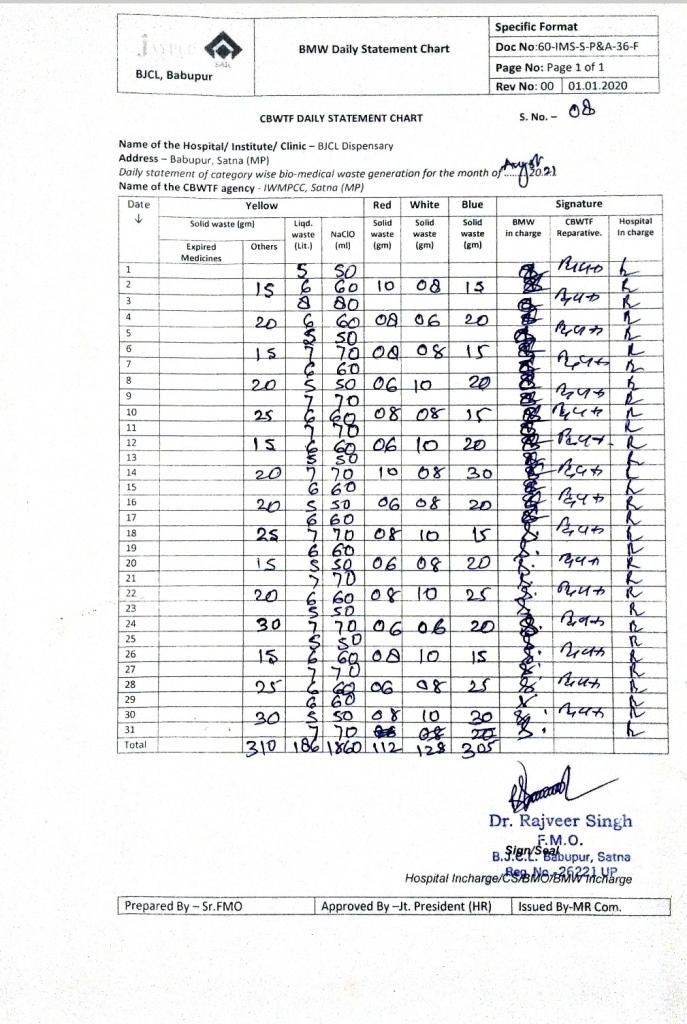 BJCL, Babupur
BMW Daily Statement Chart
Specific Format
Doc No:60-IMS-S-P&A-36-F
Page No: Page 1 of 1
Rev No: 00 01.01.2020
CBWTF DAILY STATEMENT CHART S. No. – 08
Name of the Hospital/ Institute/ Clinic – BJCL Dispensary
Address – Babupur, Satna (MP)
Daily statement of category wise bio-medical waste generation for the month of August 2021
Name of the CBWTF agency - IWMPCC, Satna (MP)
Date ↓ Yellow Red White Blue Signature
Solid waste (gm) Liqd. waste (Lit.) NaClO (ml) Solid waste (gm) Solid waste (gm) Solid waste (gm) BMW in charge CBWTF Reparative. Hospital In charge
Expired Medicines Others
1 5 50
2 15 6 60 10 08 15
3 8 80
4 20 6 60 08 06 20
5 5 50
6 15 7 70 08 08 15
7 6 60
8 20 5 50 06 10 20
9 7 70
10 25 6 60 08 08 15
11 7 70
12 15 6 60 06 10 20
13 5 50
14 20 7 70 10 08 30
15 6 60
16 20 5 50 06 08 20
17 6 60
18 25 7 70 08 10 15
19 6 60
20 15 5 50 06 08 20
21 7 70
22 20 6 60 08 10 25
23 5 50
24 30 7 70 06 06 20
25 5 50
26 15 6 60 08 10 15
27 7 70
28 25 6 60 06 08 25
29 6 60
30 30 5 50 08 10 30
31 7 70
Total 310 186 1860 112 128 305
Dr. Rajveer Singh
F.M.O.
Sign/Seal
B.J.C.L. Babupur, Satna
Reg. No. 26221 UP
Hospital Incharge/CS/BMO/BMW Incharge
Prepared By – Sr.FMO Approved By –Jt. President (HR) Issued By-MR Com.